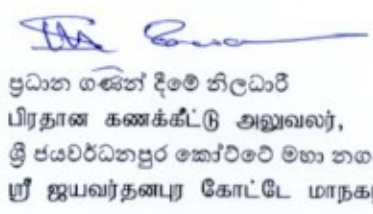 ප්‍රධාන ගණන් දීමේ නිලධාරී
பிரதான கணக்கீட்டு அலுவலர்,
ශ්‍රී ජයවර්ධනපුර කෝට්ටේ මහා නග
ஸ்ரீ ஜயவர்தனபுர கோட்டே மாநக